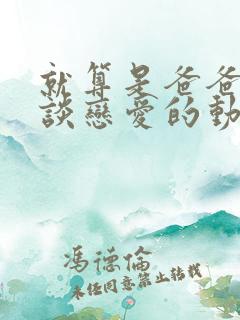 就算是爸爸
談戀愛的動
馮德倫
未經同意禁止轉載